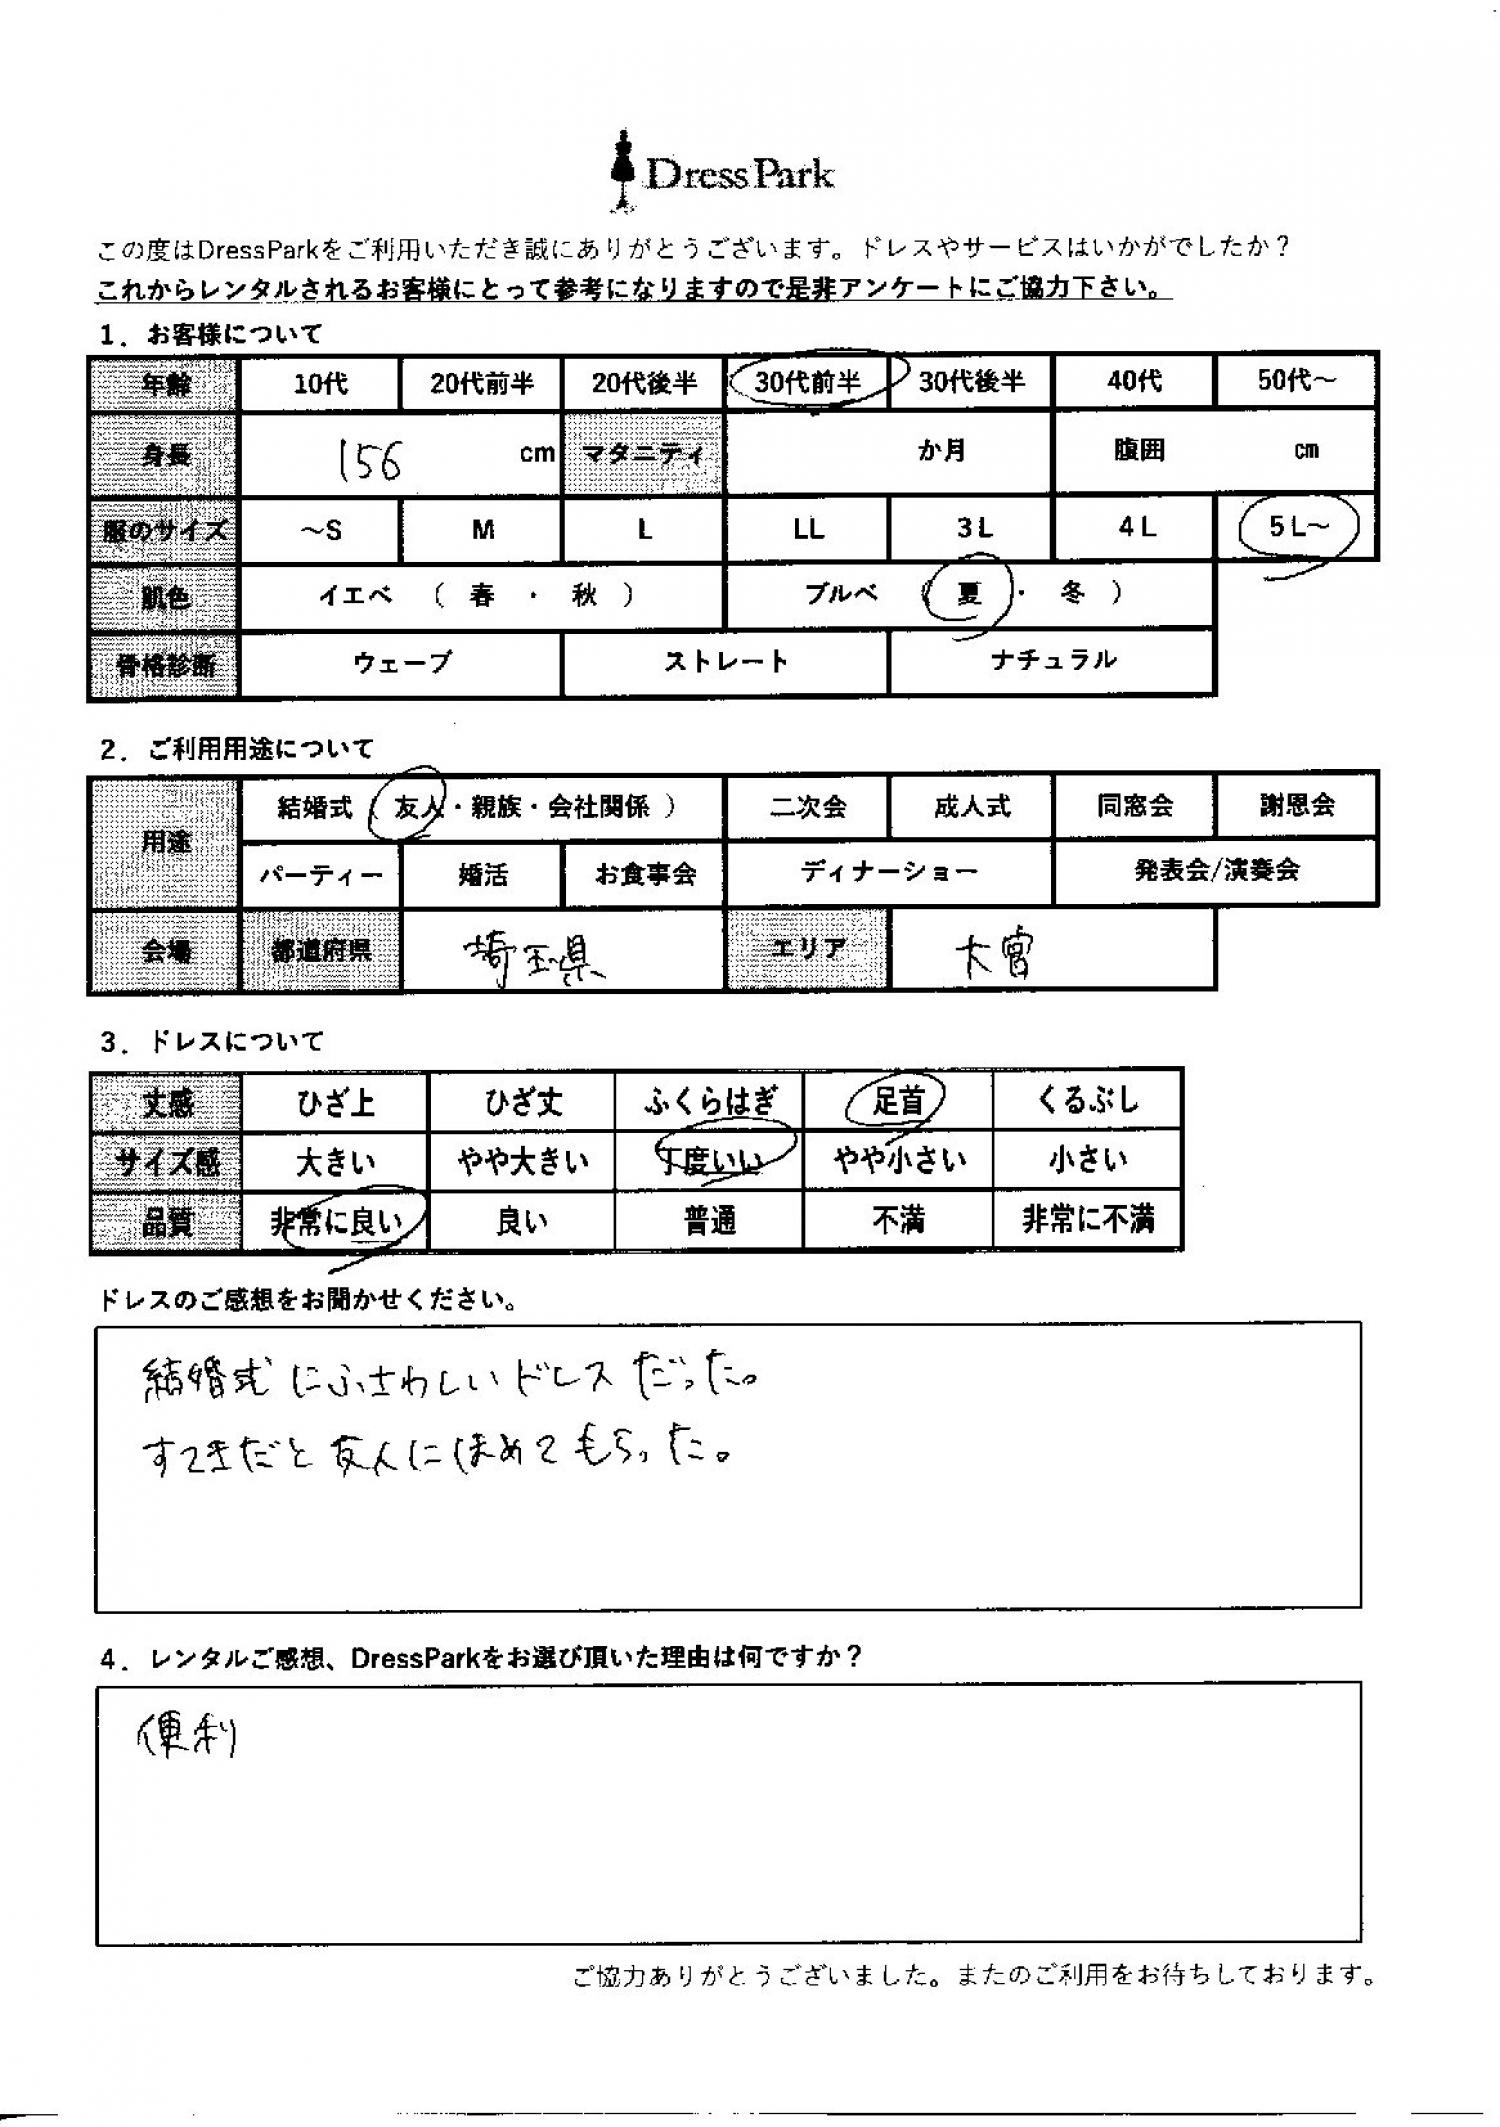 DressPark
この度はDressParkをご利用いただき誠にありがとうございます。ドレスやサービスはいかがでしたか？
これからレンタルされるお客様にとって参考になりますので是非アンケートにご協力下さい。
1．お客様について
年齢 10代 20代前半 20代後半 30代前半 30代後半 40代 50代～
身長 156 cm マタニティ か月 腹囲 cm
服のサイズ ～S M L LL 3L 4L 5L～
肌色 イエベ （ 春 ・ 秋 ） ブルベ （ 夏 ・ 冬 ）
骨格診断 ウェーブ ストレート ナチュラル
2．ご利用用途について
用途 結婚式（ 友人・親族・会社関係 ） 二次会 成人式 同窓会 謝恩会
パーティー 婚活 お食事会 ディナーショー 発表会/演奏会
会場 都道府県 埼玉県 エリア 大宮
3．ドレスについて
丈感 ひざ上 ひざ丈 ふくらはぎ 足首 くるぶし
サイズ感 大きい やや大きい 丁度いい やや小さい 小さい
品質 非常に良い 良い 普通 不満 非常に不満
ドレスのご感想をお聞かせください。
結婚式にふさわしいドレスだった。
すてきだと友人にほめてもらった。
4．レンタルご感想、DressParkをお選び頂いた理由は何ですか？
便利
ご協力ありがとうございました。またのご利用をお待ちしております。